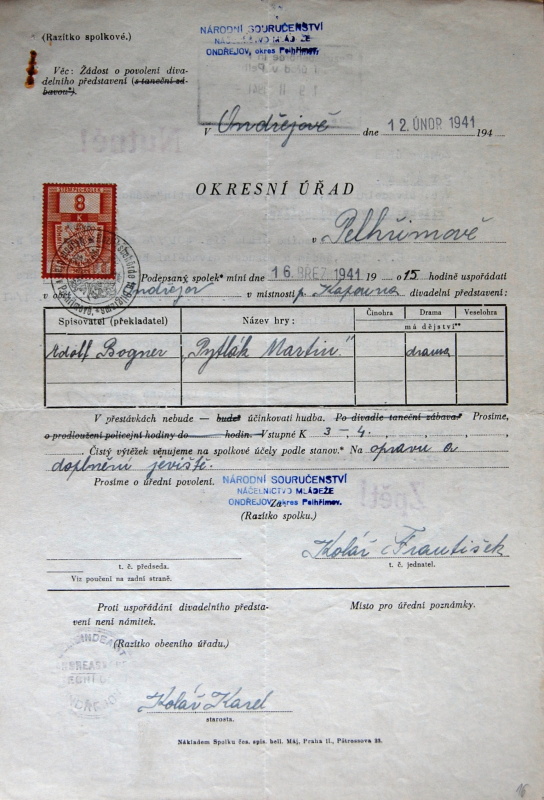 (Razítko spolkové.)
NÁRODNÍ SOURUČENSTVÍ
MLÁDEŽE
ONDŘEJOV, okres Pelhřimov.
Věc: Žádost o povolení diva-
delního představení (s taneční zá-
bavou*).
V Ondřejově dne 12. ÚNOR 1941 194
OKRESNÍ ÚŘAD
STEMPEL-KOLEK
8
K
v Pelhřimově
Podepsaný spolek* míní dne 16. BŘEZ. 1941 19 o 15 hodině uspořádati
v obci Ondřejov v místnosti p. Kapouna divadelní představení:
Spisovatel (překladatel) Název hry: Činohra Drama Veselohra
má dějství**
Adolf Bogner „Pytlák Martin.“ drama
V přestávkách nebude — bude* účinkovati hudba. Po divadle taneční zábava.* Prosíme,
o prodloužení policejní hodiny do hodin. Vstupné K 3 –, 4.
Čistý výtěžek věnujeme na spolkové účely podle stanov.* Na opravu a
doplnění jeviště.
Prosíme o úřední povolení.
NÁRODNÍ SOURUČENSTVÍ
NÁČELNICTVO MLÁDEŽE
ONDŘEJOV, okres Pelhřimov.
Za:
(Razítko spolku.)
Kolář František
t. č. předseda.
t. č. jednatel.
Viz poučení na zadní straně.
Proti uspořádání divadelního předsta-
vení není námitek.
Místo pro úřední poznámky.
(Razítko obecního úřadu.)
Kolář Karel
starosta.
Nákladem Spolku čes. spis. bell. Máj, Praha II., Pštrossova 23.
16